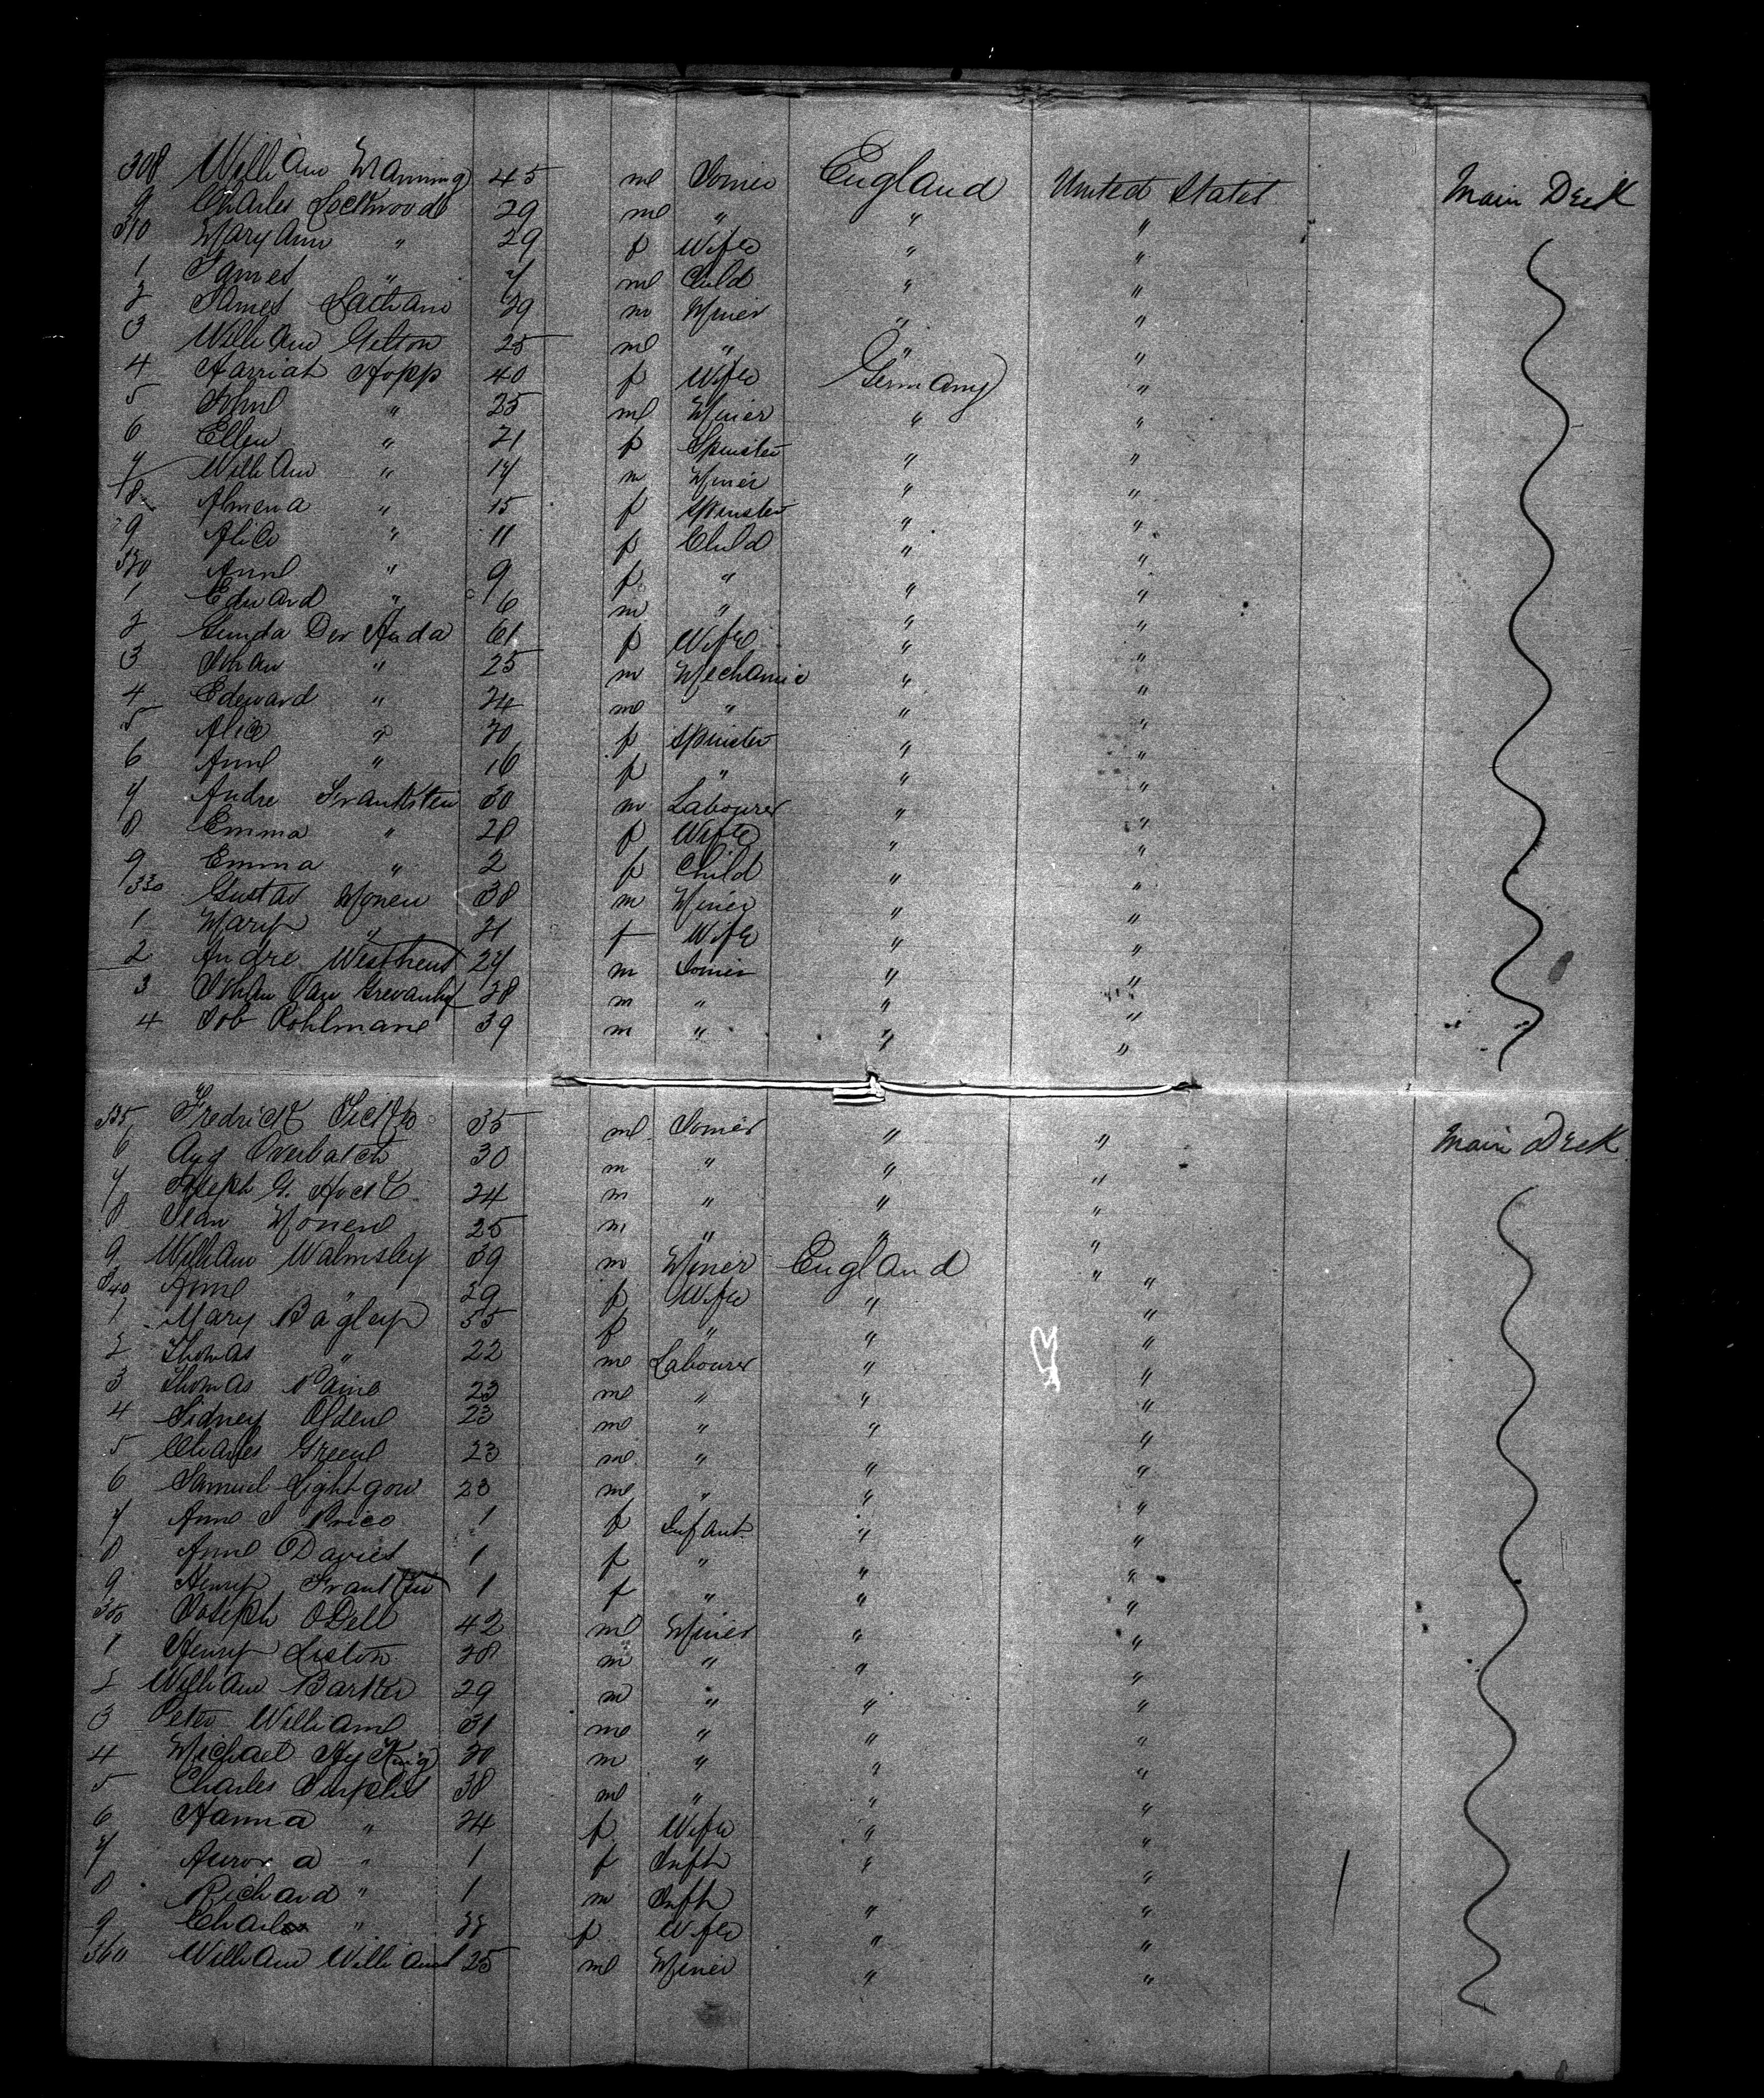 308 William Manning 45 m Joiner England United States Main Deck
9 Charles Lockwood 29 m " " "
310 Mary Ann " 29 f Wife " "
1 James " 7 m Child " "
2 James 39 m Miner " "
3 William Gelton 25 m " " "
4 Harriah Hopp 40 f Wife Germany "
5 " 25 m Miner " "
6 Ellen " 21 f Spinster " "
7 William " 17 m Miner " "
8 Almena " 15 f Spinster " "
9 Alice " 11 f Child " "
320 Anne " 9 f " " "
1 Edward " 6 m " " "
2 Der 61 f Wife " "
3 Johan " 25 m Mechanic " "
4 Edeward " 24 m " " "
5 Alice " 20 f Spinster " "
6 Anne " 16 f " " "
7 Andre Frankstein 30 m Labourer " "
8 Emma " 28 f Wife " "
9 Emma " 2 f Child " "
330 Gustav Monen 38 m Miner " "
1 Mary " 21 f Wife " "
2 Andre 27 m Joiner " "
3 Johan Van 28 m " " "
4 Job Pohlmane 39 m " " "
335 Fredrick 35 m Joiner " " Main Deck
6 Aug Overbatch 30 m " " "
7 Joseph G. 24 m " " "
8 Jean Monene 25 m " " "
9 William Walmsley 39 m Miner England " "
340 Anne " 29 f Wife " "
1 Mary Bagley 55 f " " "
2 Thomas " 22 m Labourer " "
3 Thomas Paine 23 m " " "
4 Sidney Oldene 23 m " " "
5 Charles Greene 23 m " " "
6 Samuel Lightgow 23 m " " "
7 Anne J Price 1 f Infant " "
8 Anne Davies 1 f " " "
9 Henry 1 f " " "
350 Joseph ODell 42 m Miner " "
1 Henry Liston 28 m " " "
2 William Barker 29 m " " "
3 Peter Williams 31 m " " "
4 Michael 20 m " " "
5 Charles 38 m " " "
6 Hanna " 24 f Wife " "
7 Aurora " 1 f Infh " "
8 Richard " 1 m Infh " "
9 " f Wife " "
360 William Williams 25 m Miner " "